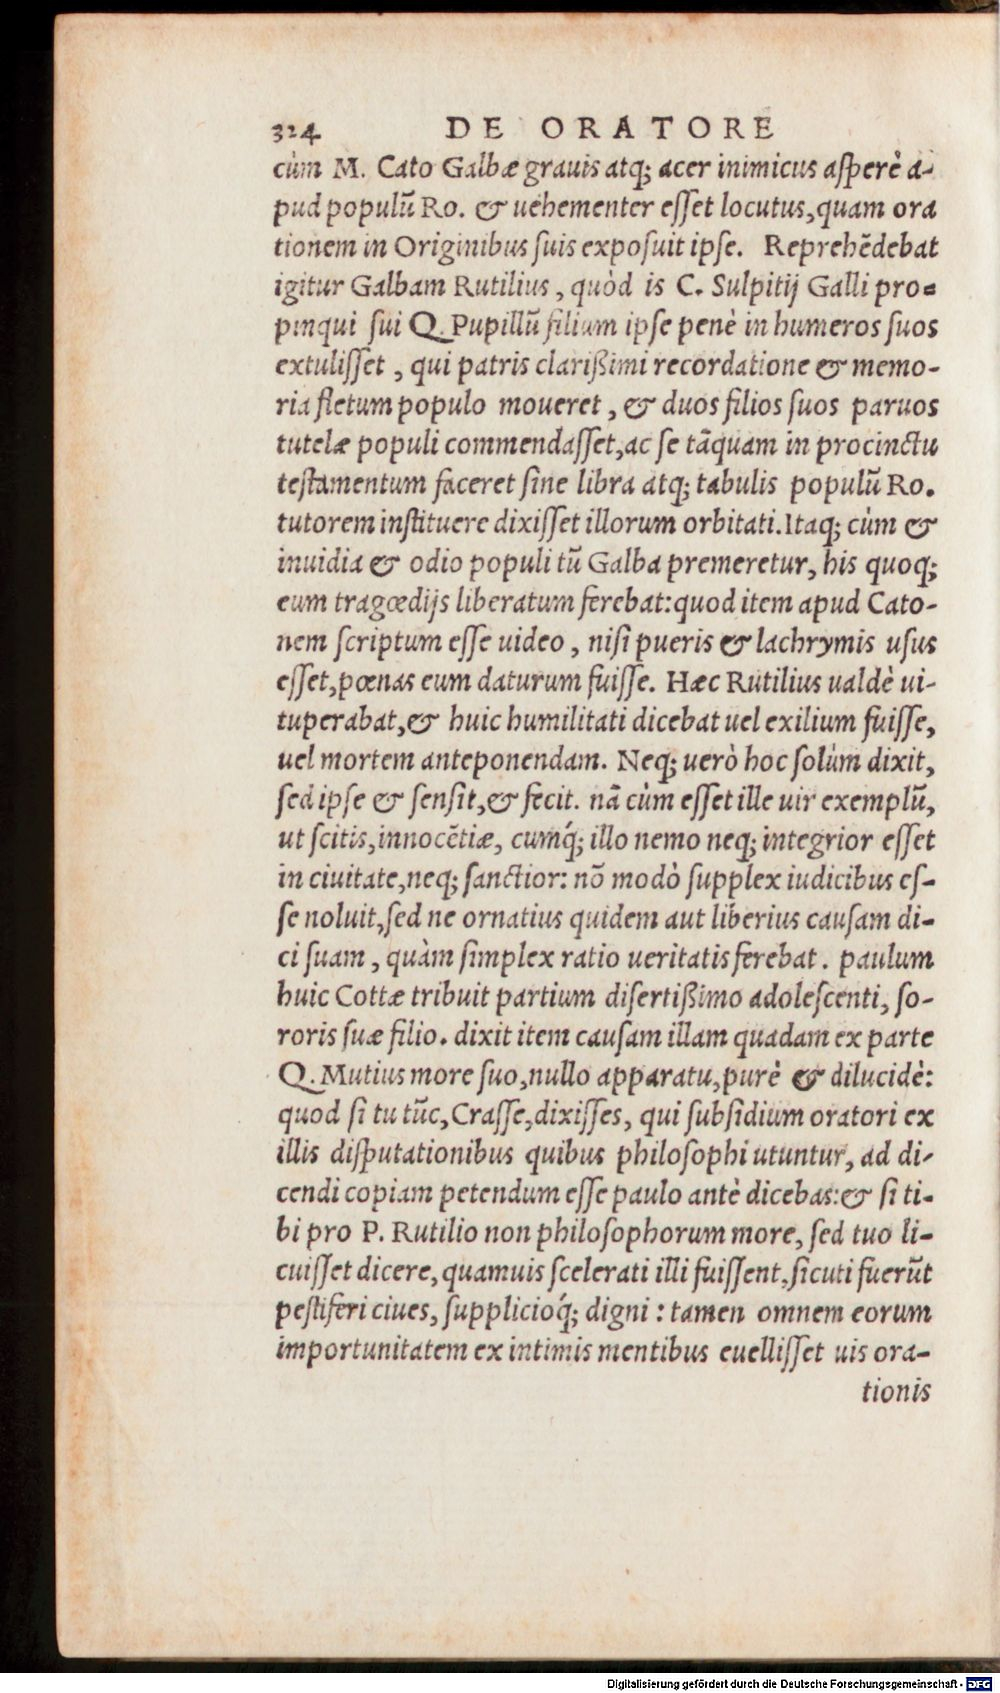 324 DE ORATORE
cùm M. Cato Galbæ grauis atq; acer inimicus asperè a-
pud populũ Ro. & uehementer esset locutus, quam ora
tionem in Originibus suis exposuit ipse. Reprehẽdebat
igitur Galbam Rutilius, quòd is C. Sulpitij Galli pro=
pinqui sui Q. Pupillũ filium ipse penè in humeros suos
extulisset, qui patris clarißimi recordatione & memo-
ria fletum populo moueret, & duos filios suos paruos
tutelæ populi commendasset, ac se tãquam in procinctu
testamentum faceret sine libra atq; tabulis populũ Ro.
tutorem instituere dixisset illorum orbitati. Itaq; cùm &
inuidia & odio populi tũ Galba premeretur, his quoq;
eum tragœdijs liberatum ferebat: quod item apud Cato-
nem scriptum esse uideo, nisi pueris & lachrymis usus
esset, pœnas eum daturum fuisse. Hæc Rutilius ualdè ui-
tuperabat, & huic humilitati dicebat uel exilium fuisse,
uel mortem anteponendam. Neq; uerò hoc solùm dixit,
sed ipse & sensit, & fecit. nã cùm esset ille uir exemplũ,
ut scitis, innocẽtiæ, cumq́; illo nemo neq; integrior esset
in ciuitate, neq; sanctior: nõ modò supplex iudicibus es-
se noluit, sed ne ornatius quidem aut liberius causam di-
ci suam, quàm simplex ratio ueritatis ferebat. paulum
huic Cottæ tribuit partium disertißimo adolescenti, so-
roris suæ filio. dixit item causam illam quadam ex parte
Q. Mutius more suo, nullo apparatu, purè & dilucidè:
quod si tu tũc, Crasse, dixisses, qui subsidium oratori ex
illis disputationibus quibus philosophi utuntur, ad di-
cendi copiam petendum esse paulo antè dicebas: & si ti-
bi pro P. Rutilio non philosophorum more, sed tuo li-
cuisset dicere, quamuis scelerati illi fuissent, sicuti fuerũt
pestiferi ciues, supplicioq́; digni: tamen omnem eorum
importunitatem ex intimis mentibus euellisset uis ora-
tionis
Digitalisierung gefördert durch die Deutsche Forschungsgemeinschaft - DFG